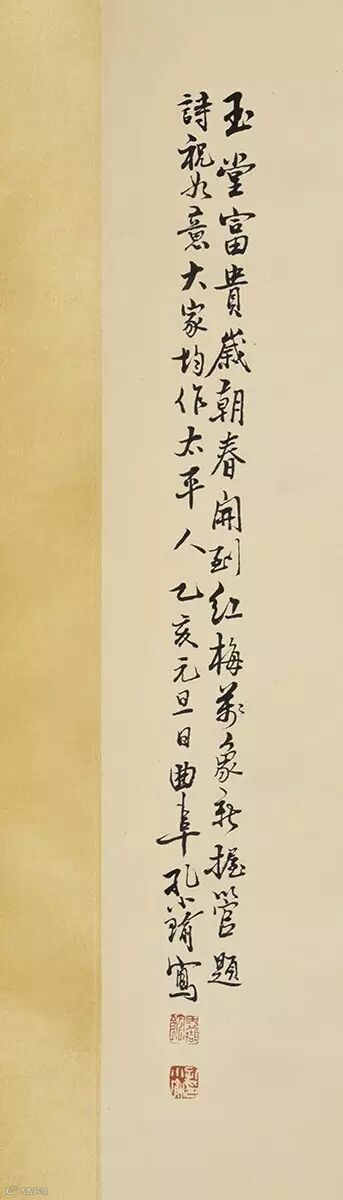 玉堂富貴歲朝春開到紅梅萬象新握管題
詩祝如意大家均作太平人乙亥元旦日曲阜孔小瑜寫